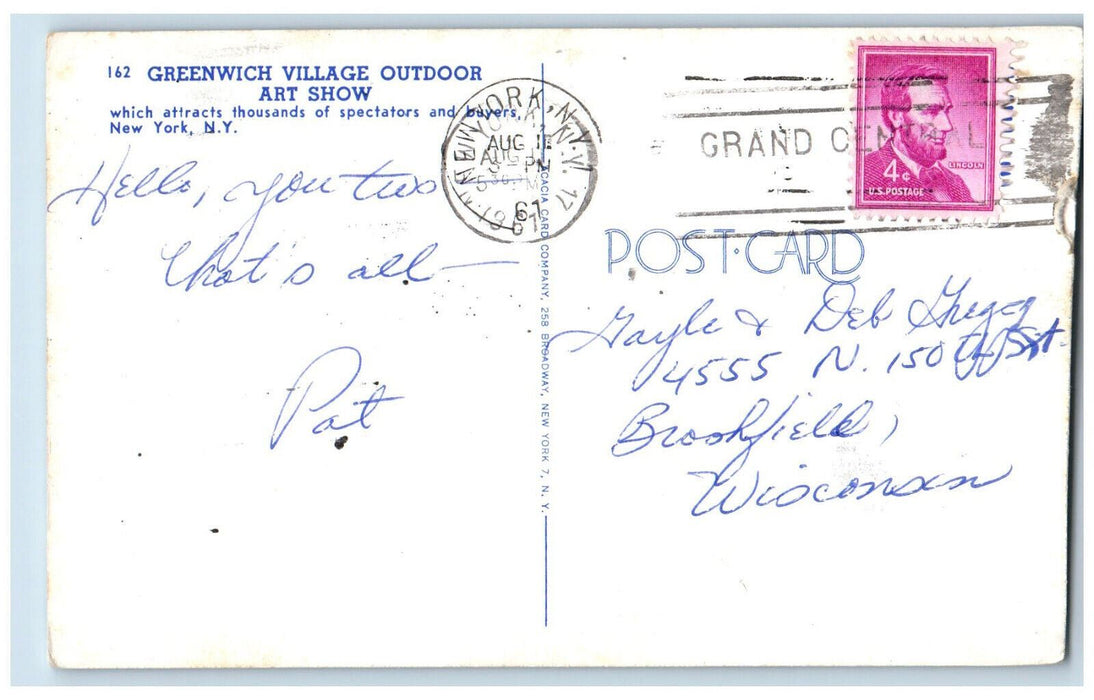 162 GREENWICH VILLAGE OUTDOOR
ART SHOW
which attracts thousands of spectators and buyers,
New York, N.Y.
Hello, you two
that's all —
Pat
NEW YORK, N.Y. 17
AUG 11
PM
61
GRAND CENTRAL
LINCOLN
4¢
U.S. POSTAGE
ACACIA CARD COMPANY, 258 BROADWAY, NEW YORK 7, N. Y.
POST·CARD
Gayle & Deb
4555 N. 150th St.
Brookfield,
Wisconsin